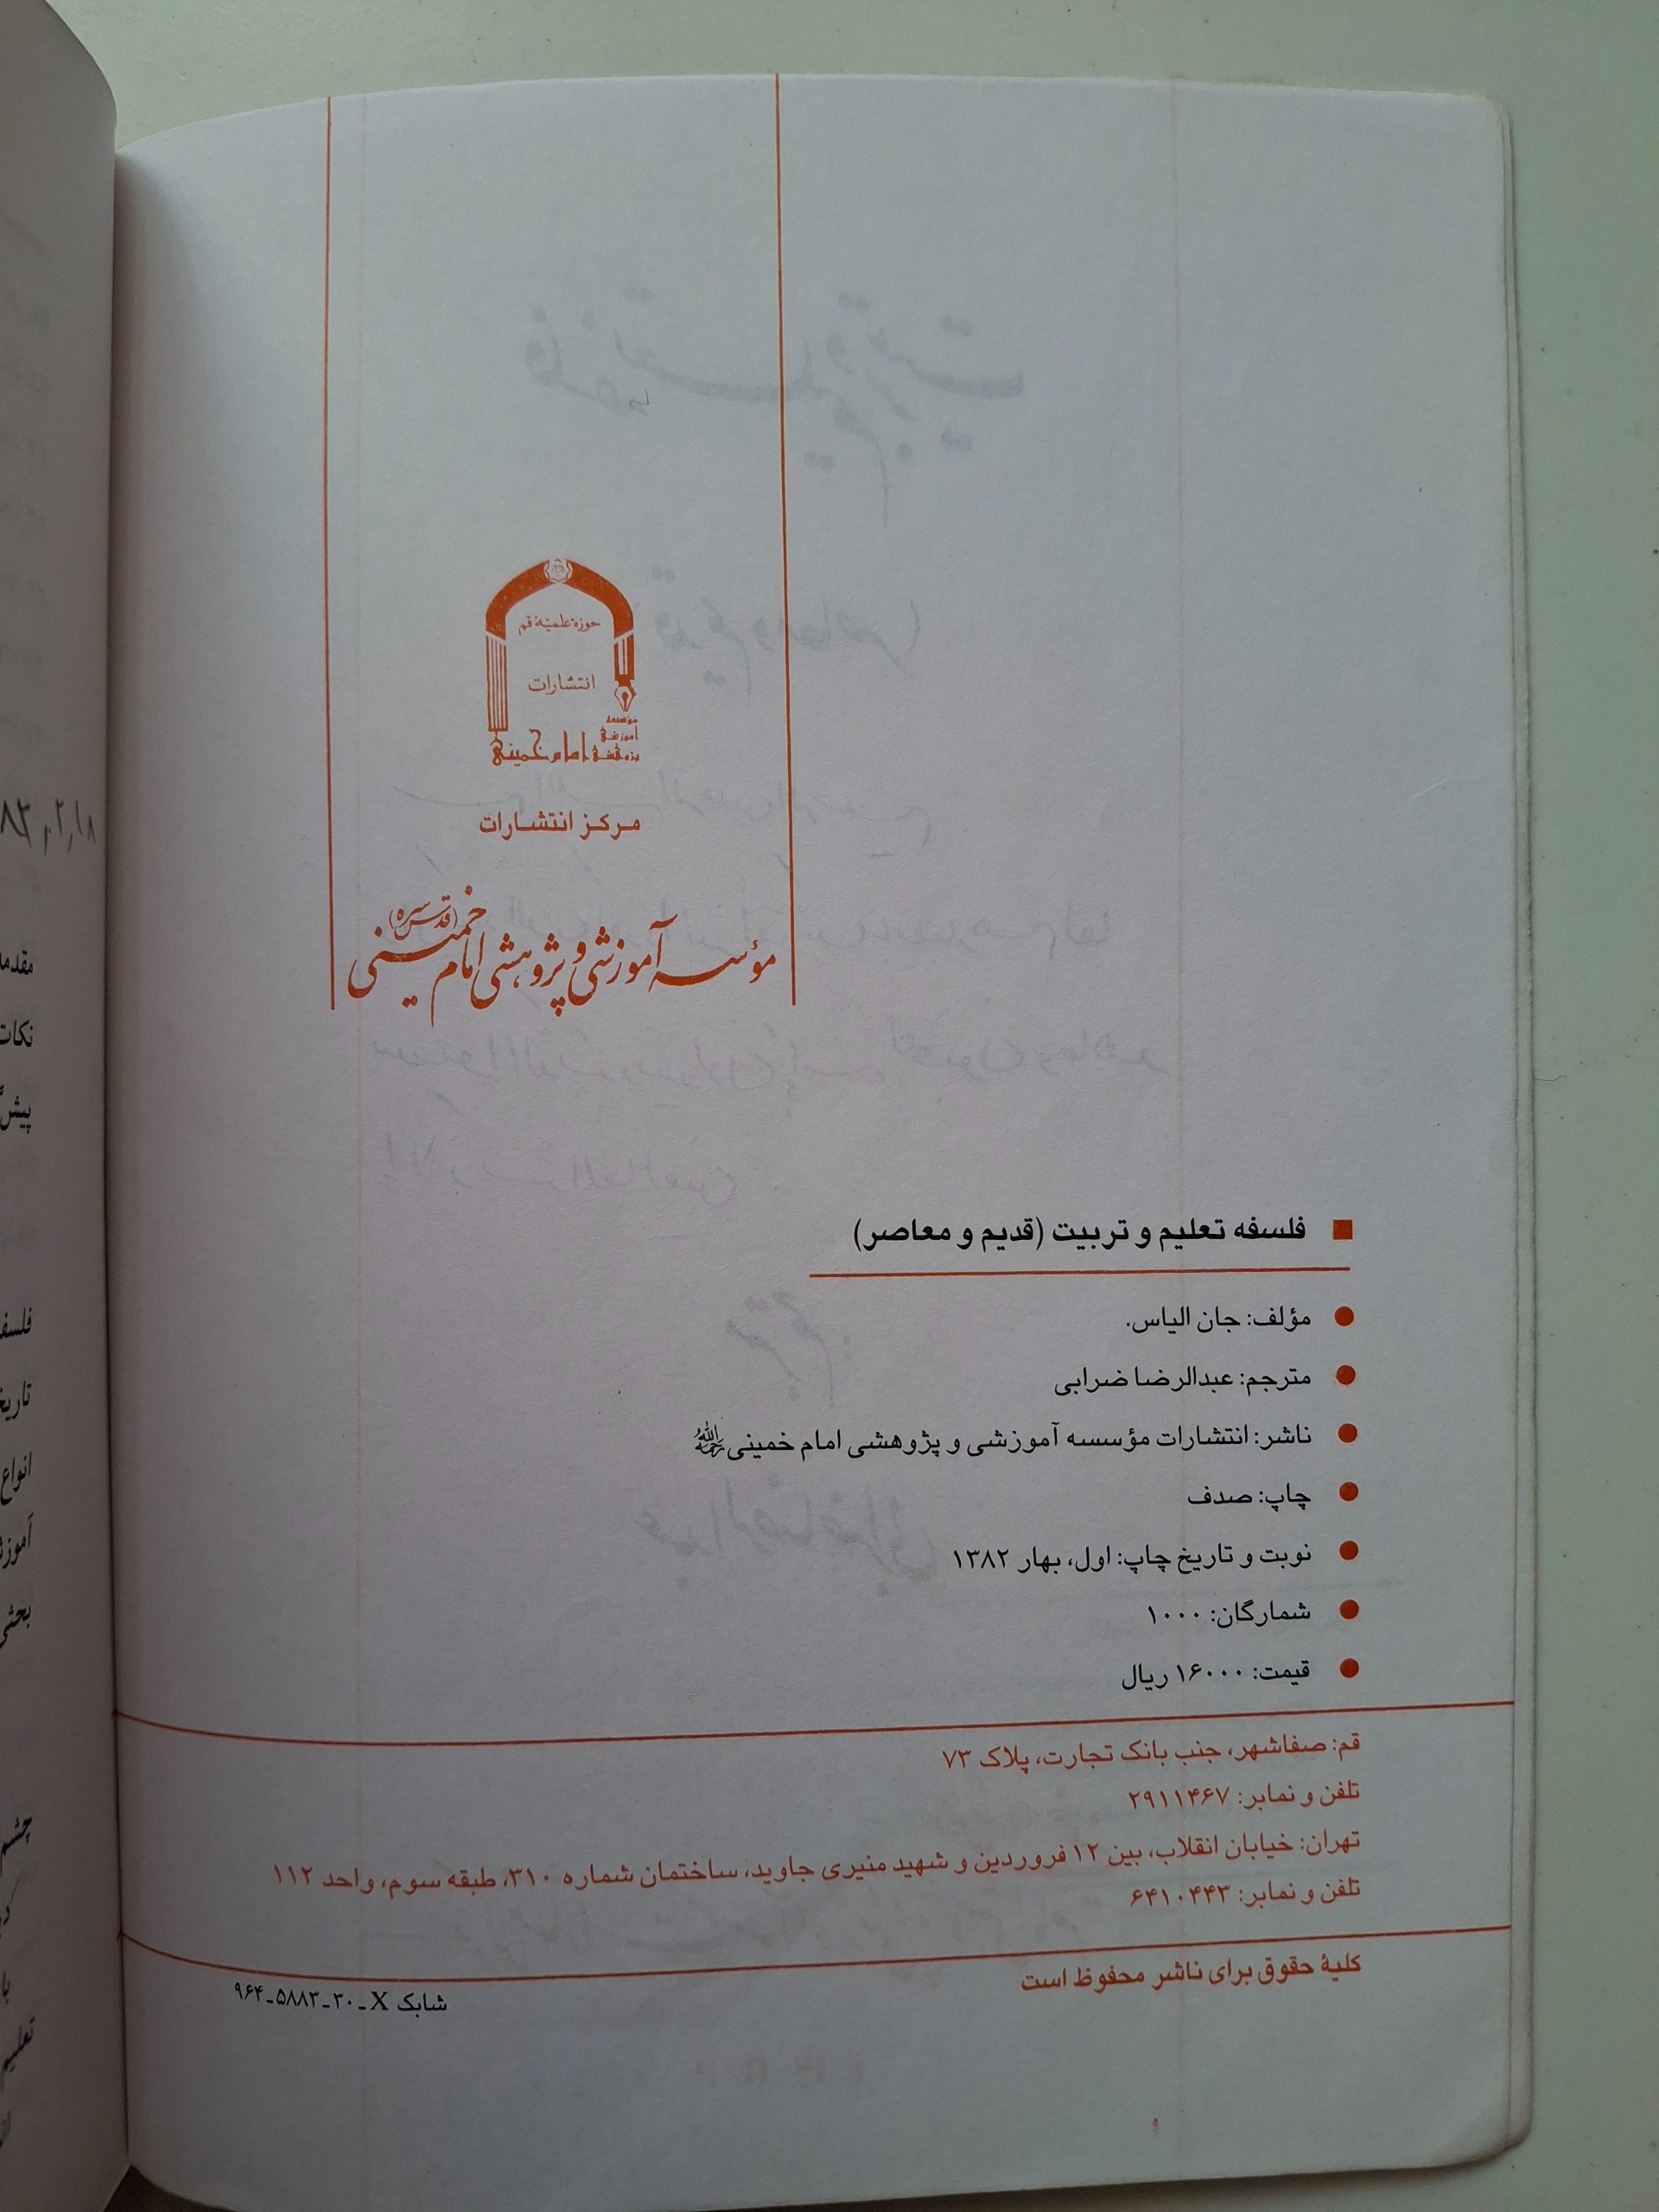 حوزه علمیّه قم
انتشارات
مؤسسه
آموزشی
پژوهشی امام خمینی
مرکز انتشارات
مؤسسه آموزشی و پژوهشی امام خمینی (قدس سره)
فلسفه تعلیم و تربیت (قدیم و معاصر)
مؤلف: جان الیاس.
مترجم: عبدالرضا ضرابی
ناشر: انتشارات مؤسسه آموزشی و پژوهشی امام خمینی رحمه‌الله
چاپ: صدف
نوبت و تاریخ چاپ: اول، بهار ۱۳۸۲
شمارگان: ۱۰۰۰
قیمت: ۱۶۰۰۰ ریال
قم: صفاشهر، جنب بانک تجارت، پلاک ۷۳
تلفن و نمابر: ۲۹۱۱۴۶۷
تهران: خیابان انقلاب، بین ۱۲ فروردین و شهید منیری جاوید، ساختمان شماره ۳۱۰، طبقه سوم، واحد ۱۱۲
تلفن و نمابر: ۶۴۱۰۴۴۳
کلیهٔ حقوق برای ناشر محفوظ است
شابک X ـ ۳۰ ـ ۵۸۸۳ ـ ۹۶۴
مقدمه
نکات
فلسفه
انواع